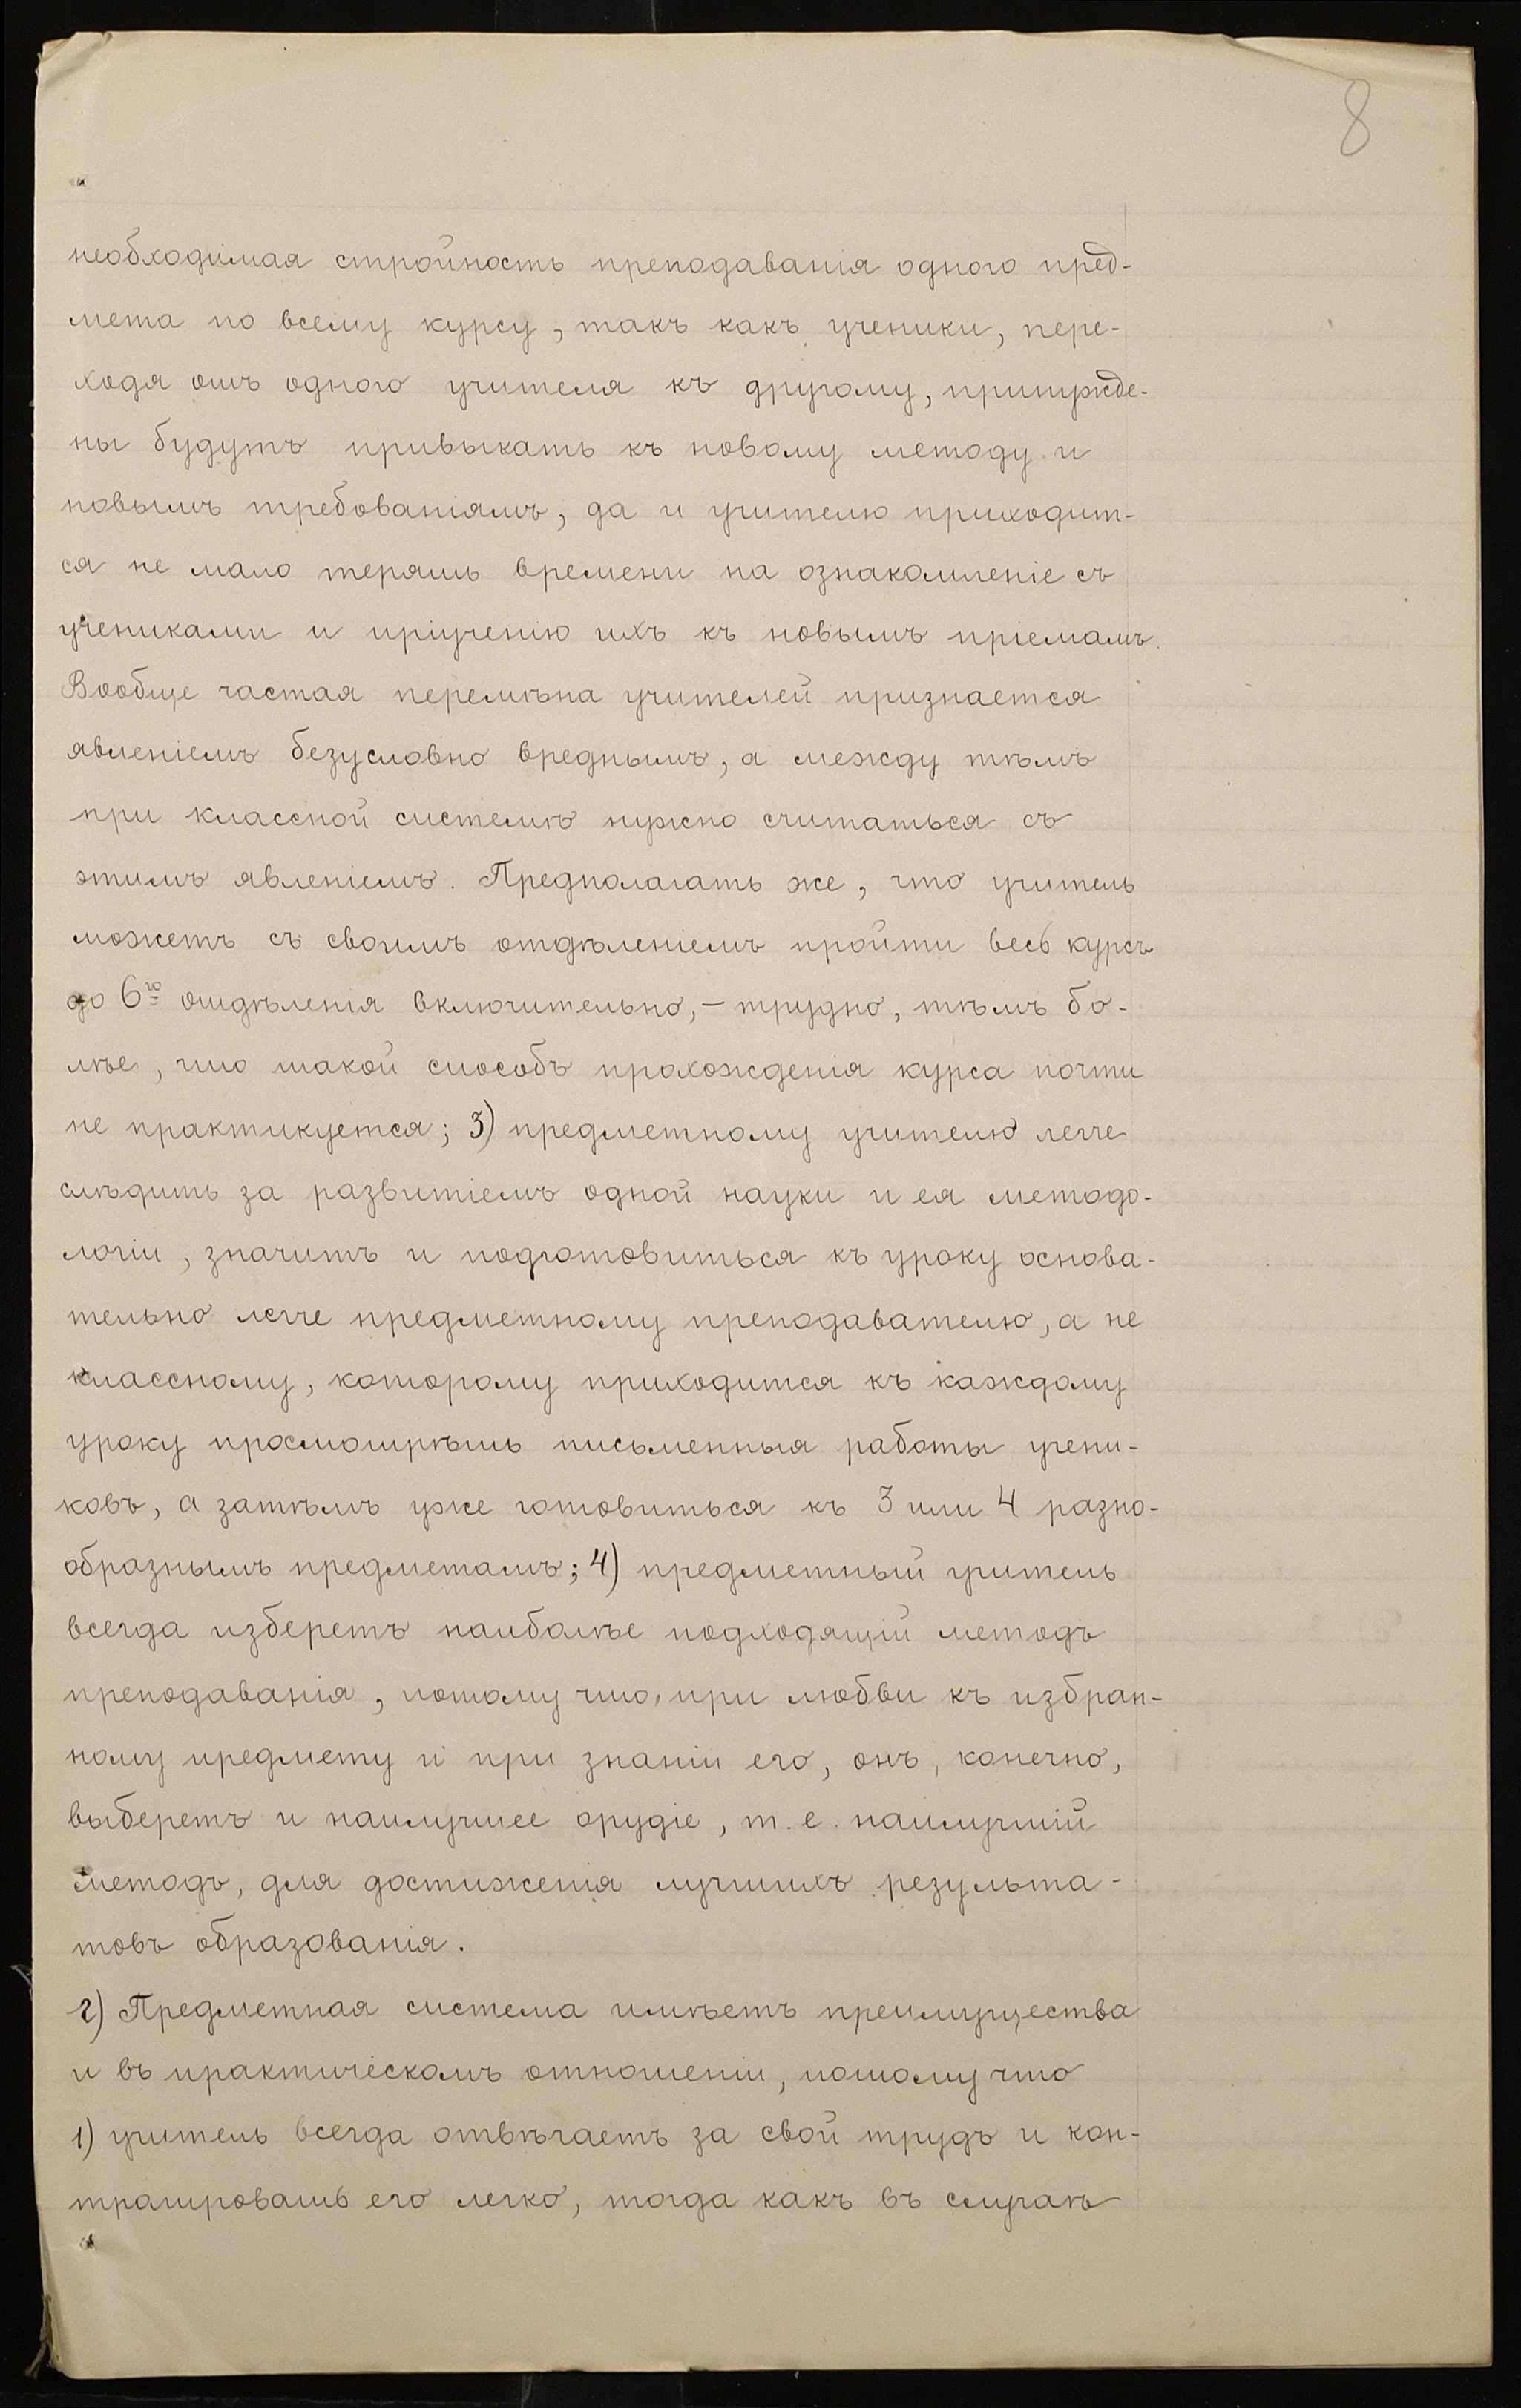 8
необходимая стройность преподаванія одного пред-
мета по всему курсу, такъ какъ ученики, пере-
ходя отъ одного учителя къ другому, принужде-
ны будутъ привыкать къ новому методу и
новымъ требованіямъ, да и учителю приходит-
ся не мало терять времени на ознакомленіе съ
учениками и пріученію ихъ къ новымъ пріемамъ.
Вообще частая перемѣна учителей признается
явленіемъ безусловно вреднымъ, а между тѣмъ
при классной системѣ нужно считаться съ
этимъ явленіемъ. Предполагать же, что учитель
можетъ съ своимъ отдѣленіемъ пройти весь курсъ
до 6го отдѣленія включительно, – трудно, тѣмъ бо-
лѣе, что такой способъ прохожденія курса почти
не практикуется; 3) предметному учителю легче
слѣдить за развитіемъ одной науки и ея методо-
логіи, значитъ и подготовиться къ уроку основа-
тельно легче предметному преподавателю, а не
классному, которому приходится къ каждому
уроку просмотрѣть письменныя работы учени-
ковъ, а затѣмъ уже готовиться къ 3 или 4 разно-
образнымъ предметамъ; 4) предметный учитель
всегда изберетъ наиболѣе подходящій методъ
преподаванія, потому что, при любви къ избран-
ному предмету и при знаніи его, онъ, конечно,
выберетъ и наилучшее орудіе, т. е. наилучшій
методъ, для достиженія лучшихъ результа-
товъ образованія.
2) Предметная система имѣетъ преимущества
и въ практическомъ отношеніи, потому что
1) учитель всегда отвѣчаетъ за свой трудъ и кон-
тролировать его легко, тогда какъ въ случаѣ